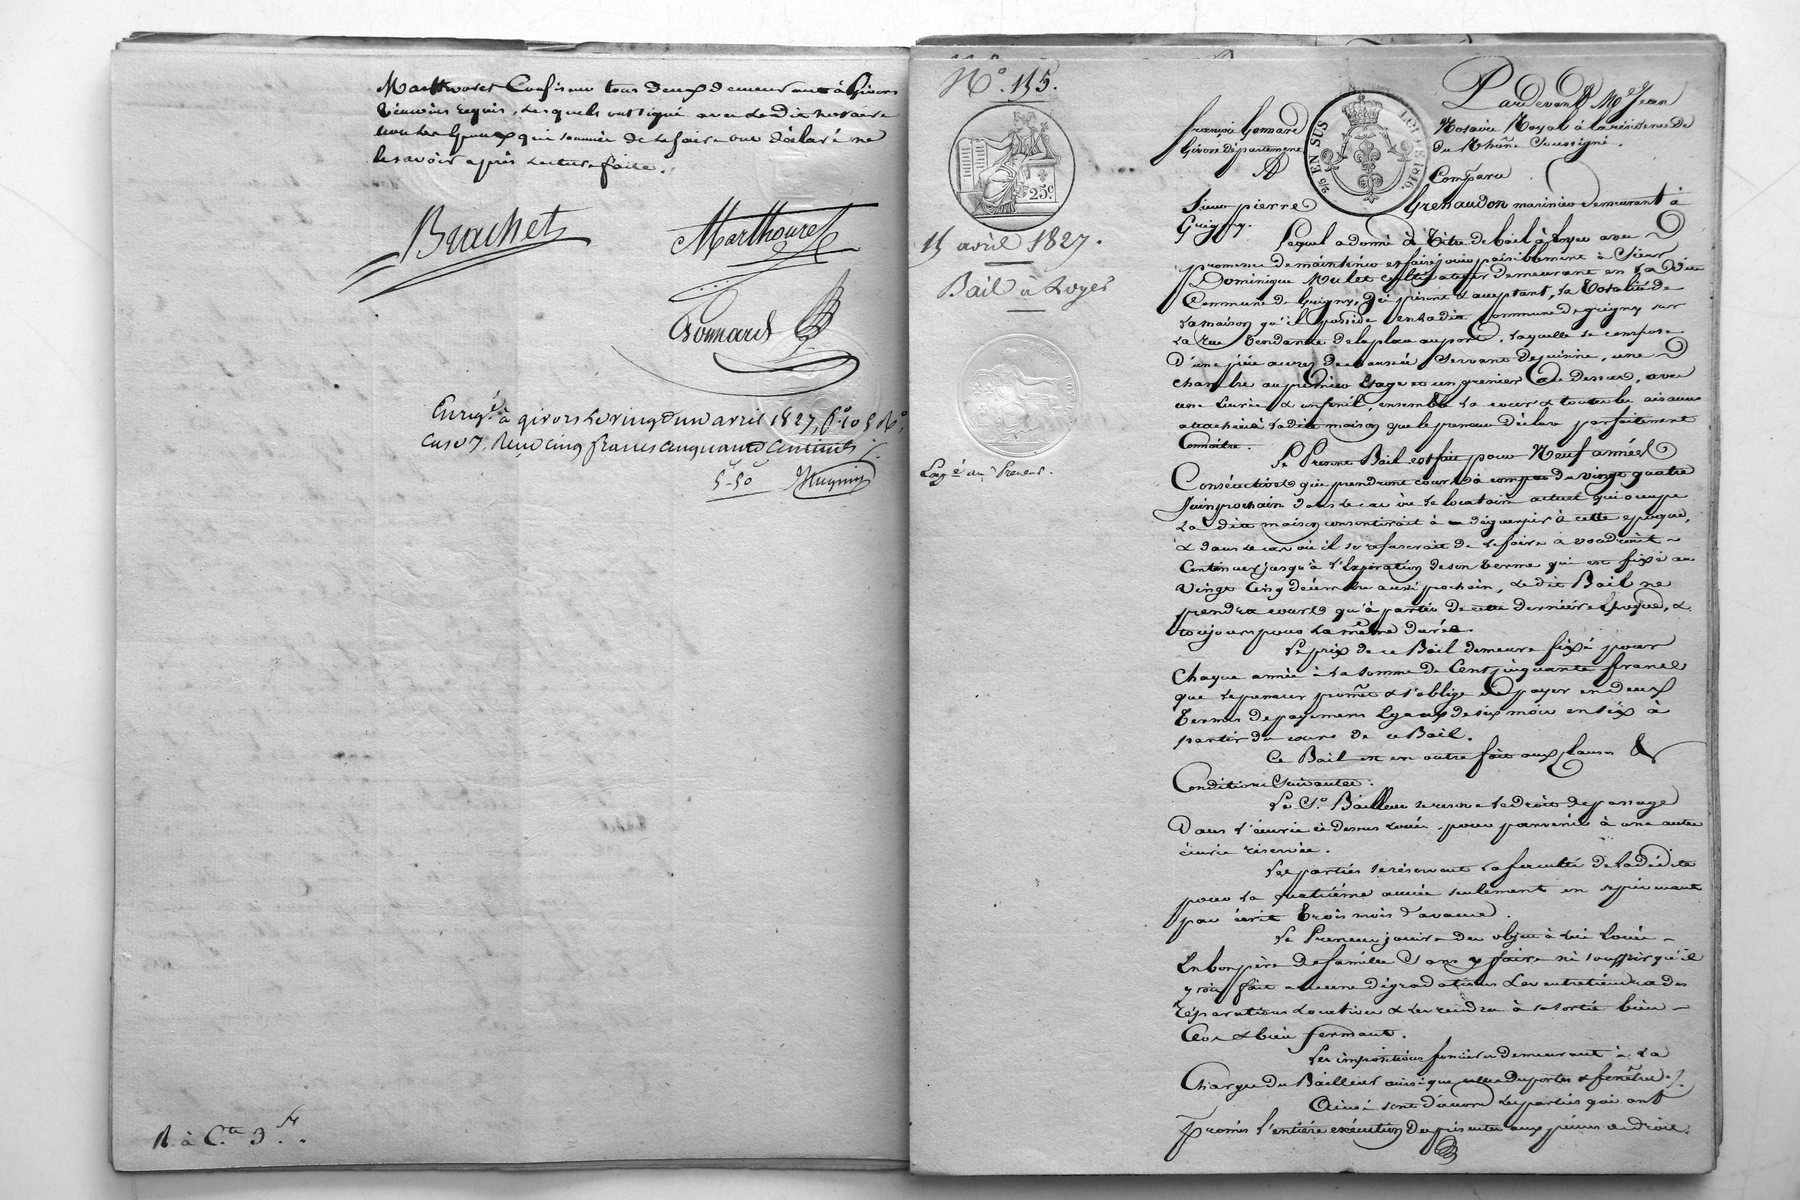 Marthouret Confiseur tous deux demeurant à Givors
témoins requis, lesquels ont signé avec ledit notaire
non les Epoux qui sommés de le faire ont déclaré ne
le savoir après lecture faite.
Brachet
Marthouret
Gomard
Enregé à givors le vingt un avril 1827, fo 105 Ro,
case 7, Reçu cinq francs cinquante Centimes
5-50
R. à C.te 3.
No. 115.
25c.
2/5 EN SUS
LOI DE 1816.
15 avril 1827.
Bail à Loyer
au Preneur.
Pardevant Me Jean
françois Gomard Notaire Royal à la résidence de
Givors département du Rhône Soussigné.
Comparu
Sieur pierre Grenaudon marinier demeurant à
Grigny.
Lequel a donné à titre de bail à loyer avec
promesse de maintenir et faire jouir paisiblement à Sieur
Dominique Mulet cultivateur demeurant en la dite
Commune de Grigny, ici présent & acceptant, la totalité de
la maison qu'il possède en ladite Commune de grigny sur
la rue tendante de la place au port, laquelle se compose
d'une pièce au rez de chaussée servant de cuisine, une
chambre au premier Etage et un grenier au Dessus, avec
une Ecurie & un fenil, ensemble la cour & toutes les aisances
attachées à ladite maison que le preneur déclare parfaitement
Connaître.
Le Présent Bail est fait pour Neuf années
Consécutives qui prendront cours à compter du vingt quatre
Juin prochain dans le cas où le locataire actuel qui occupe
la dite maison consentirait à déguerpir à cette époque,
& dans le cas où il se refuserait de le faire & voudrait
Continuer jusqu'à l'Expiration de son terme qui est fixé au
Vingt Cinq décembre aussi prochain, ledit Bail ne
prendra cours qu'à partir de cette dernière Epoque, &
toujours pour la même durée.
Le prix de ce Bail demeure fixé pour
Chaque année à la somme de Cent cinquante francs
que le preneur promet & s'oblige de payer en deux
termes de payemens Egaux de six mois en six à
partir du cours de ce Bail.
Ce Bail est en outre fait aux Clauses &
Conditions Suivantes:
Le Sr. Bailleur se réserve le droit de passage
Dans l'écurie ci dessus louée pour parvenir à une autre
écurie réservée.
Les parties se réservent la faculté de la dédite
pour la quatrième année seulement en se prévenant
par écrit trois mois d'avance.
Le Preneur jouira des objets à lui loués
En bon père de famille sans y faire ni souffrir qu'il
y soit fait aucune dégradation & les entretiendra des
réparations locatives & les rendra à sa sortie bien
Clos & bien fermant.
Les impositions foncières demeurant à la
Charge du Bailleur ainsi que celles des portes & fenêtres.
Ainsi sont d'accord les parties qui ont
promis l'entière exécution des présentes aux peines de droit.